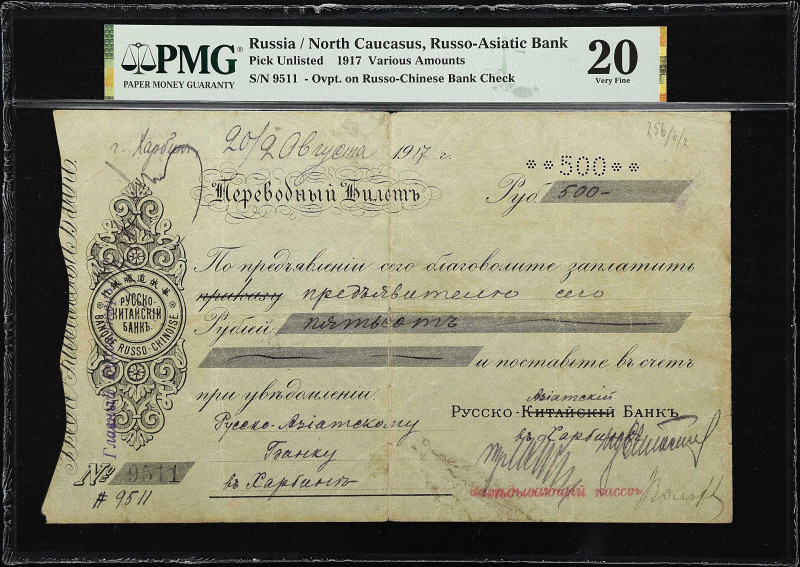 PMG
PAPER MONEY GUARANTY
Russia / North Caucasus, Russo-Asiatic Bank
Pick Unlisted 1917 Various Amounts
S/N 9511 - Ovpt. on Russo-Chinese Bank Check
20
Very Fine
256/6/2
г. Харбин 20/2 Августа 1917 г.
**500**
Переводный Билетъ
Руб. 500-
По предъявленiи сего благоволите заплатить
приказу предъявителю сего
Рублей пятьсотъ
и поставьте въ счетъ
при увѣдомленiи.
РУССКО-
КИТАЙСКIЙ
БАНКЪ.
BANQUE RUSSO-CHINOISE
Азiатскiй
РУССКО-КИТАЙСКIЙ БАНКЪ
Русско-Азiатскому
въ Харбинѣ
Банку
въ Харбинѣ
Завѣдывающiй кассой
№ 9511
# 9511